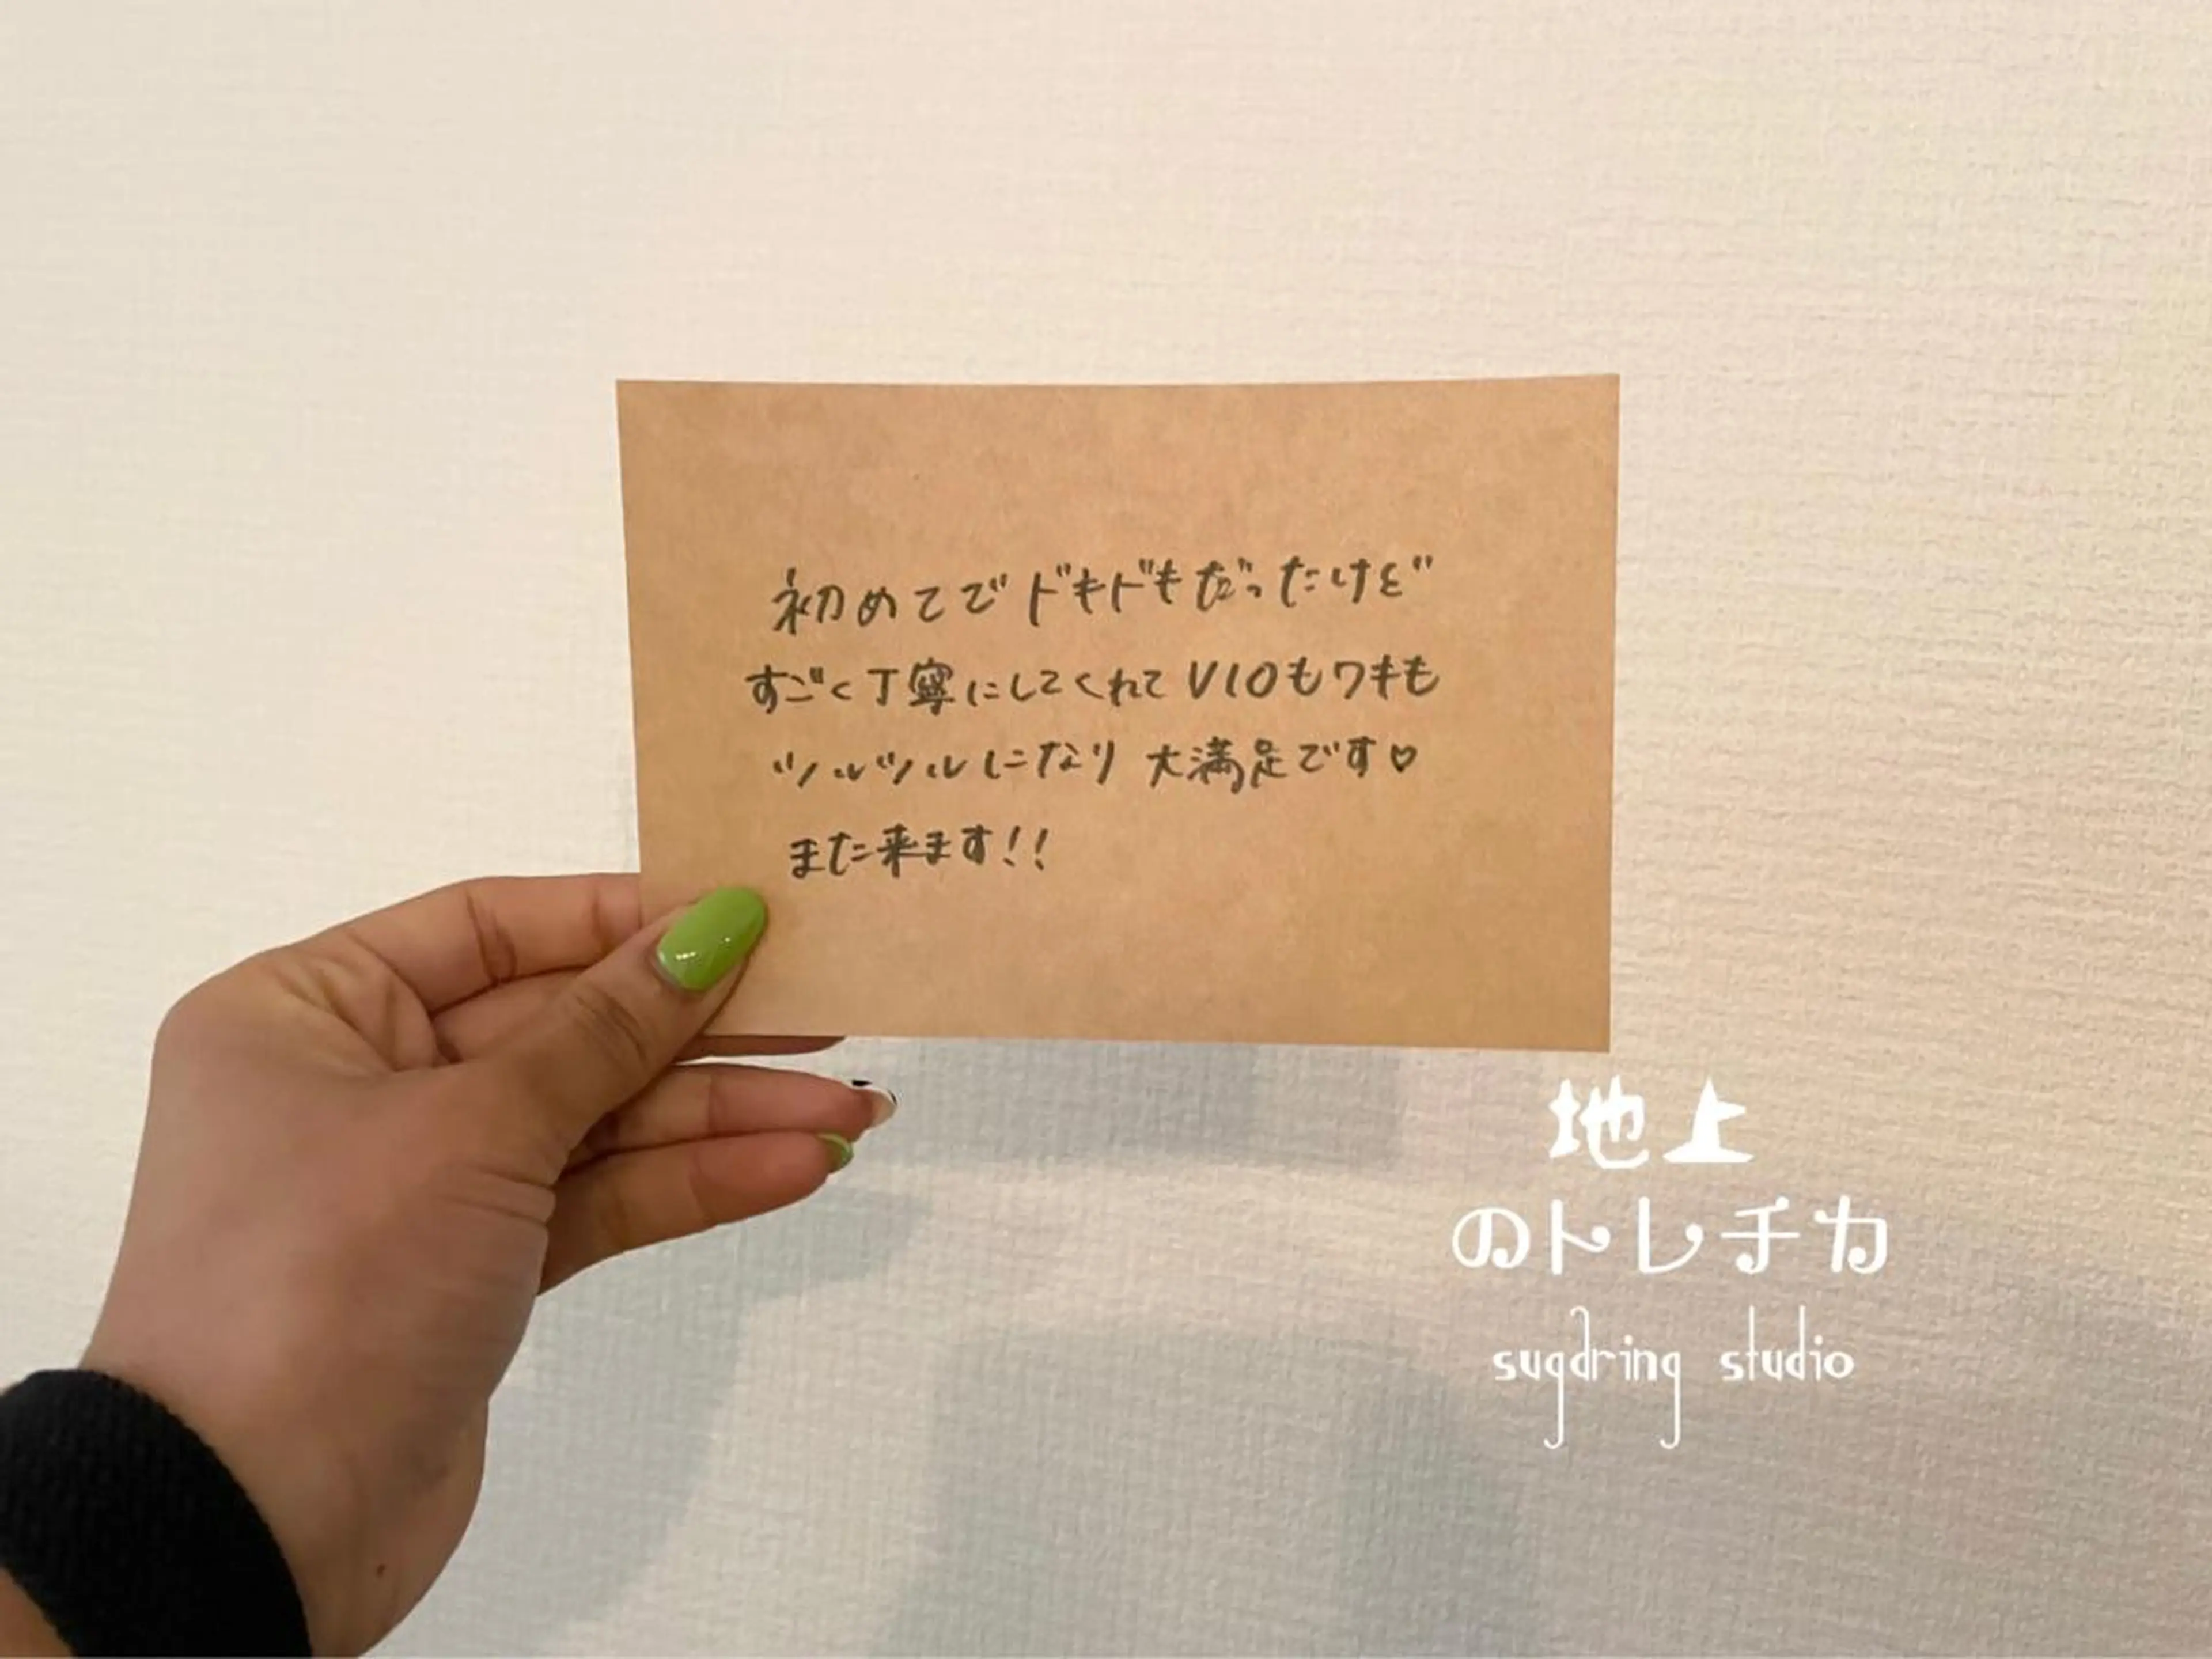 初めてでドキドキだったけど
すごく丁寧にしてくれてVIOもワキも
ツルツルになり 大満足です♡
また来ます!!
地上
のトレチカ
sugdring studio